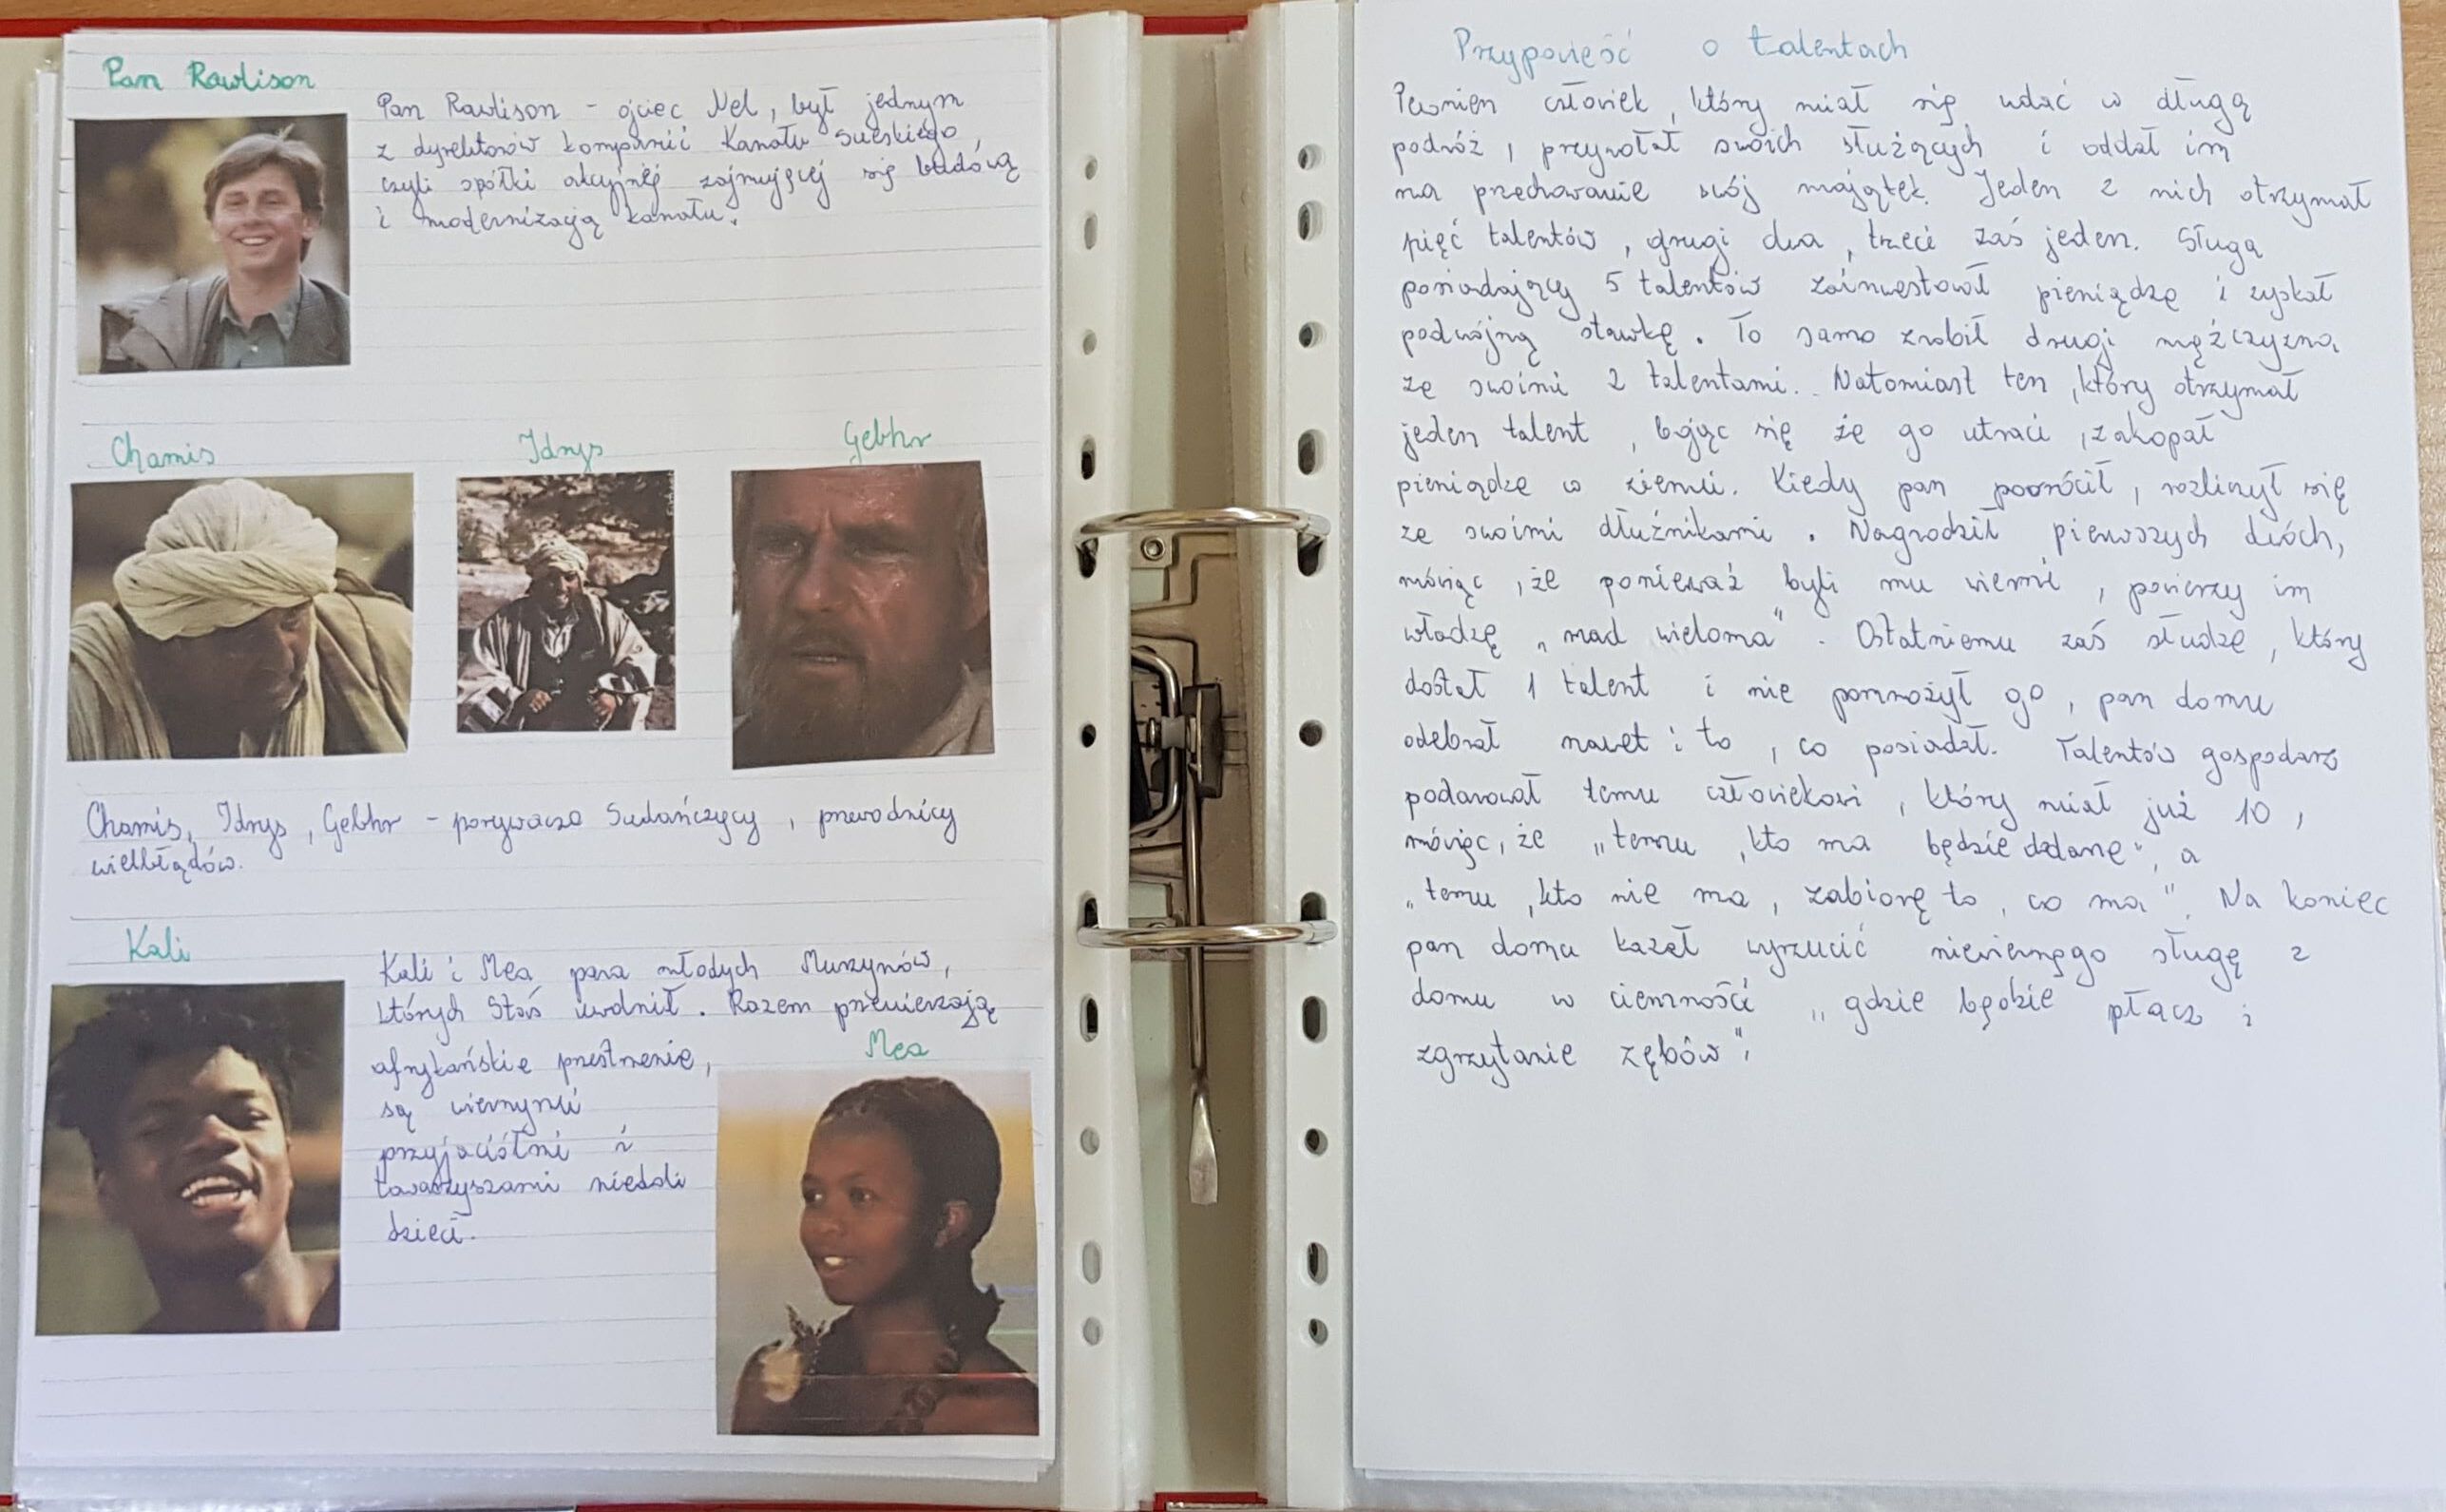 Pan Rawlison
Pan Rawlison - ojciec Nel, był jednym
z dyrektorów kompanii Kanału Sueskiego,
czyli spółki akcyjnej zajmującej się budową
i modernizacją kanału.
Chamis
Idrys
Gebhr
Chamis, Idrys, Gebhr - porywacze Sudańczycy, przewodnicy
wielbłądów.
Kali
Kali i Mea para młodych Murzynów,
których Staś uwolnił. Razem przemierzają
Mea
afrykańskie przestrzenie,
są wiernymi
przyjaciółmi i
towarzyszami niedoli
dzieci.
Przypowieść o talentach
Pewnien człowiek, który miał się udać w długą
podróż, przywołał swoich służących i oddał im
na przechowanie swój majątek. Jeden z nich otrzymał
pięć talentów, drugi dwa, trzeci zaś jeden. Sługa
posiadający 5 talentów zainwestował pieniądze i zyskał
podwójną stawkę. To samo zrobił drugi mężczyzna
ze swoimi 2 talentami. Natomiast ten, który otrzymał
jeden talent, bojąc się że go utraci, zakopał
pieniądze w ziemi. Kiedy pan powrócił, rozliczył się
ze swoimi dłużnikami. Nagrodził pierwszych dwóch,
mówiąc, że ponieważ byli mu wierni, powierzy im
władzę „nad wieloma". Ostatniemu zaś słudze, który
dostał 1 talent i nie pomnożył go, pan domu
odebrał nawet i to, co posiadał. Talentów gospodarz
podarował temu człowiekowi, który miał już 10,
mówiąc, że „temu, kto ma będzie dodane", a
„temu, kto nie ma, zabiorę to, co ma". Na koniec
pan domu kazał wyrzucić niewiernego sługę z
domu w ciemności „gdzie będzie płacz i
zgrzytanie zębów".